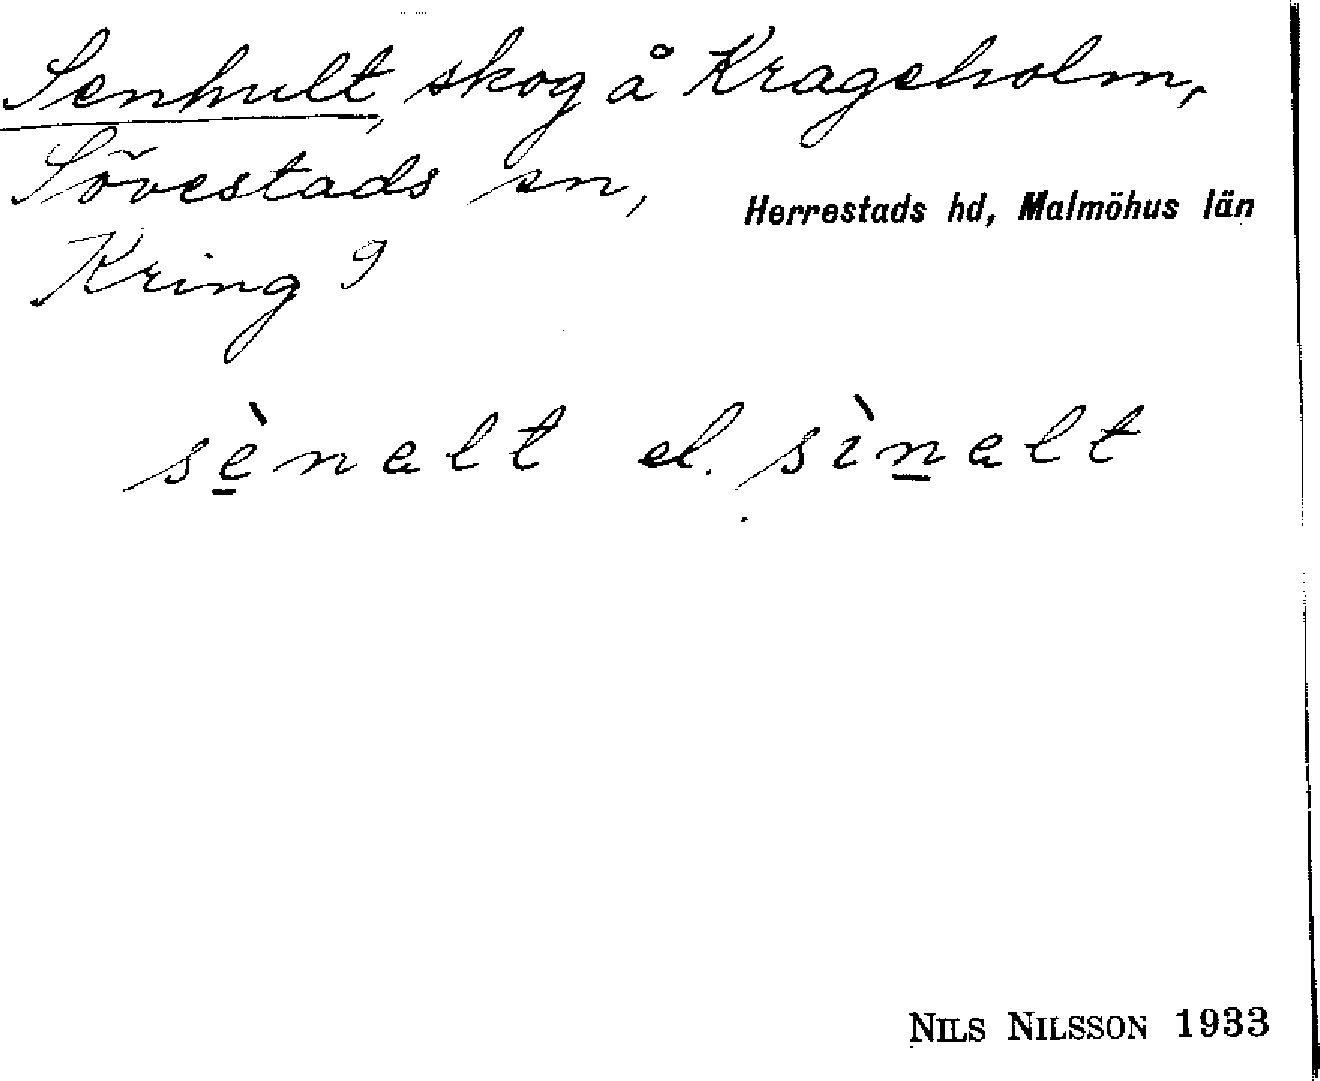 Senhult, skog å Krageholm,
Sövestads sn,
Herrestads hd, Malmöhus län
Kring 9
sè̱nalt el. sìṉalt
NILS NILSSON 1933